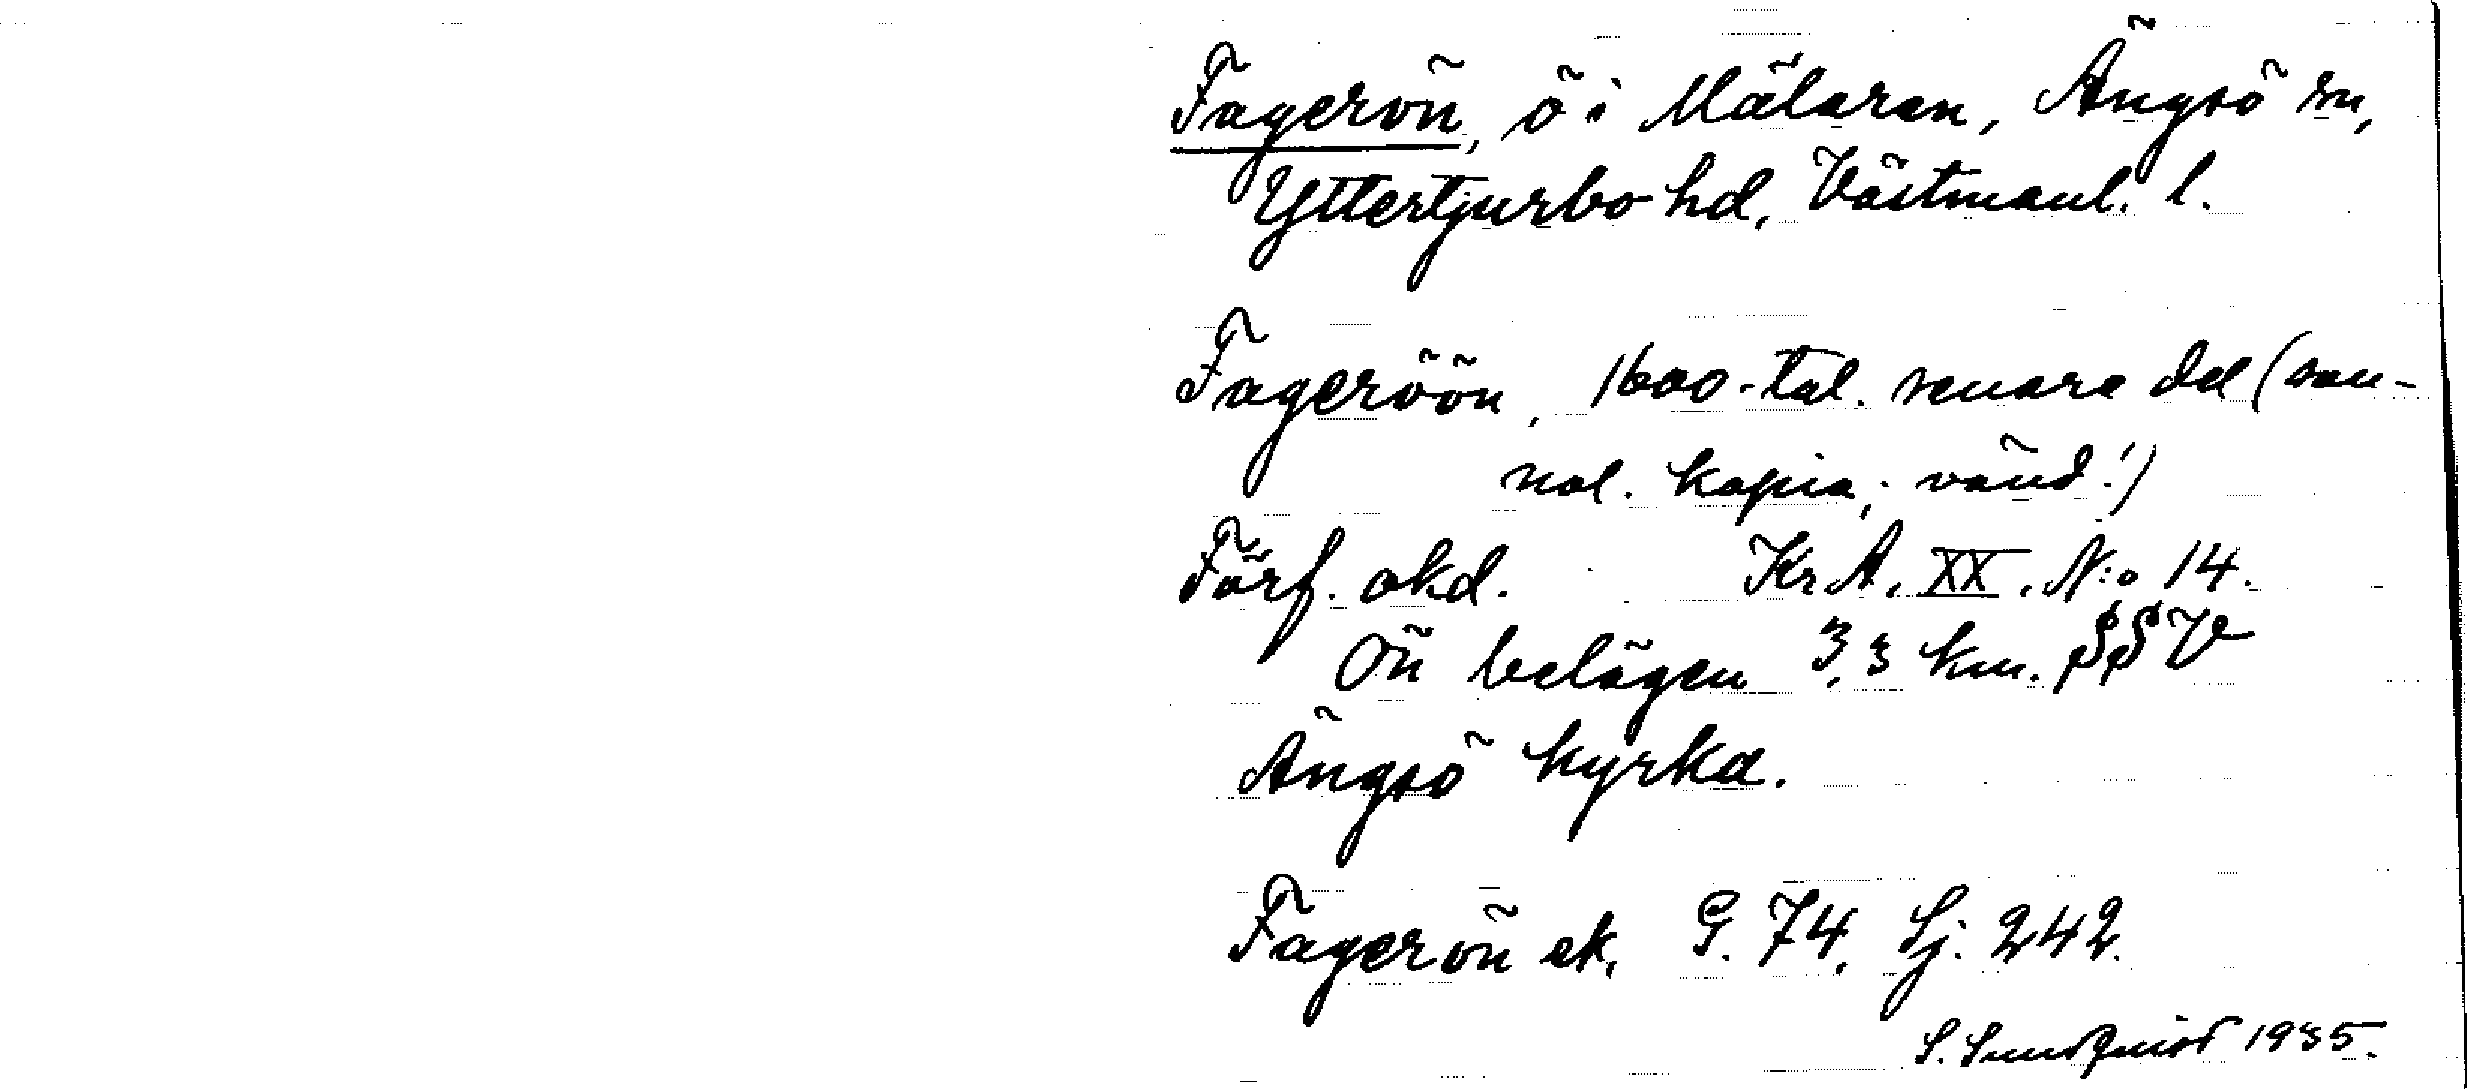 Fagerön, ö i Mälaren, Ängsö sn,
Yttertjurbo hd, Västmanl. l.
Fageröön, 1600-tal. senare del (san-
nol. kopia; vänd!)
Förf. okd. KrA. XX. N:o 14.
Ön belägen 3,3 km. SSV
Ängsö kyrka.
Fagerön ek. G. 74, Lj. 242.
S. Sundquist 1935.